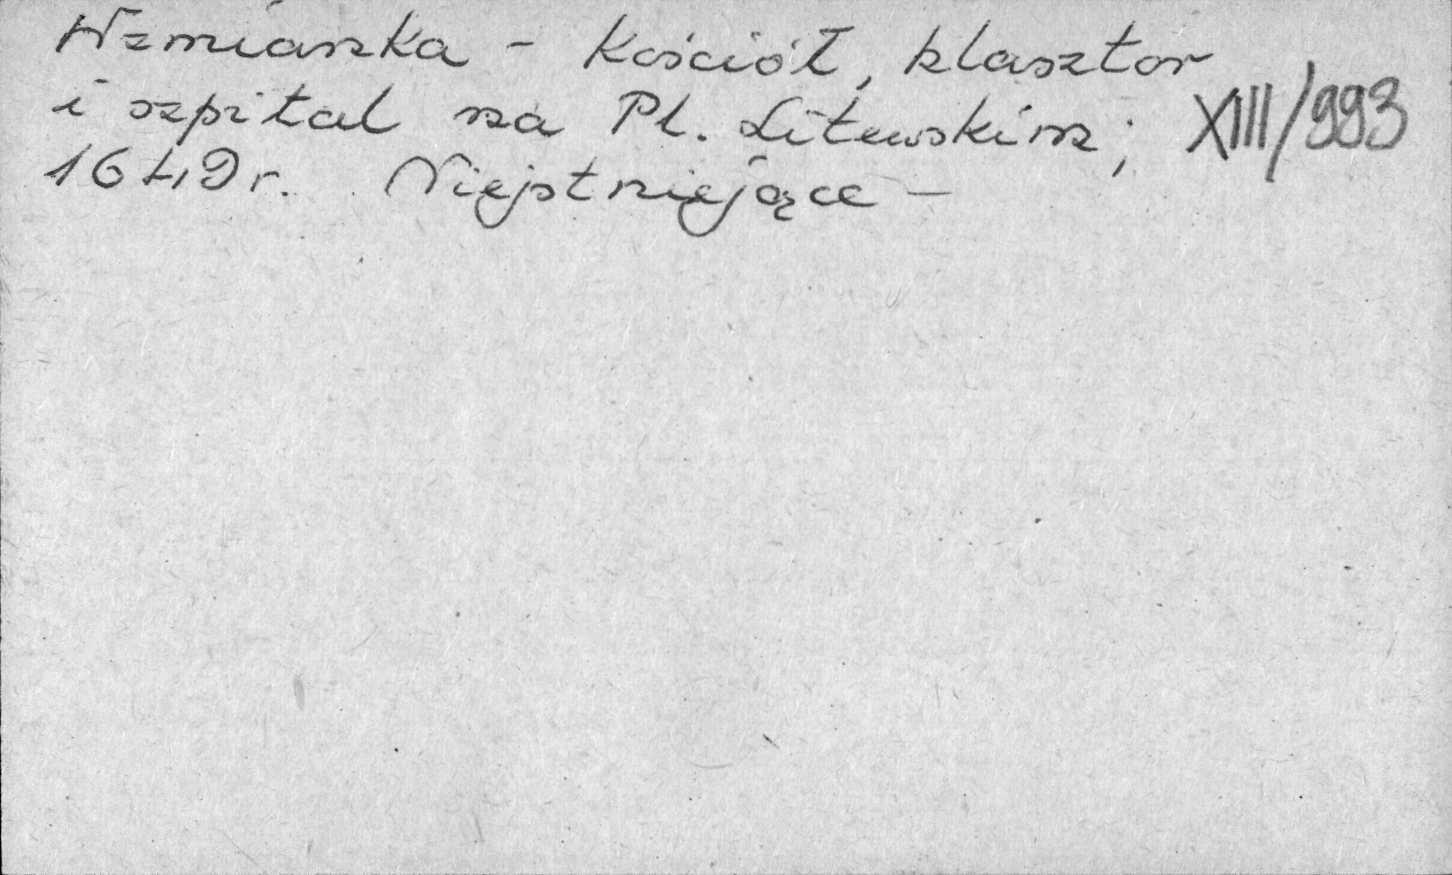 Wzmianka - Kościół, klasztor
i szpital na Pl. Litewskim; XIII/993
1649 r. Niejstniejące -